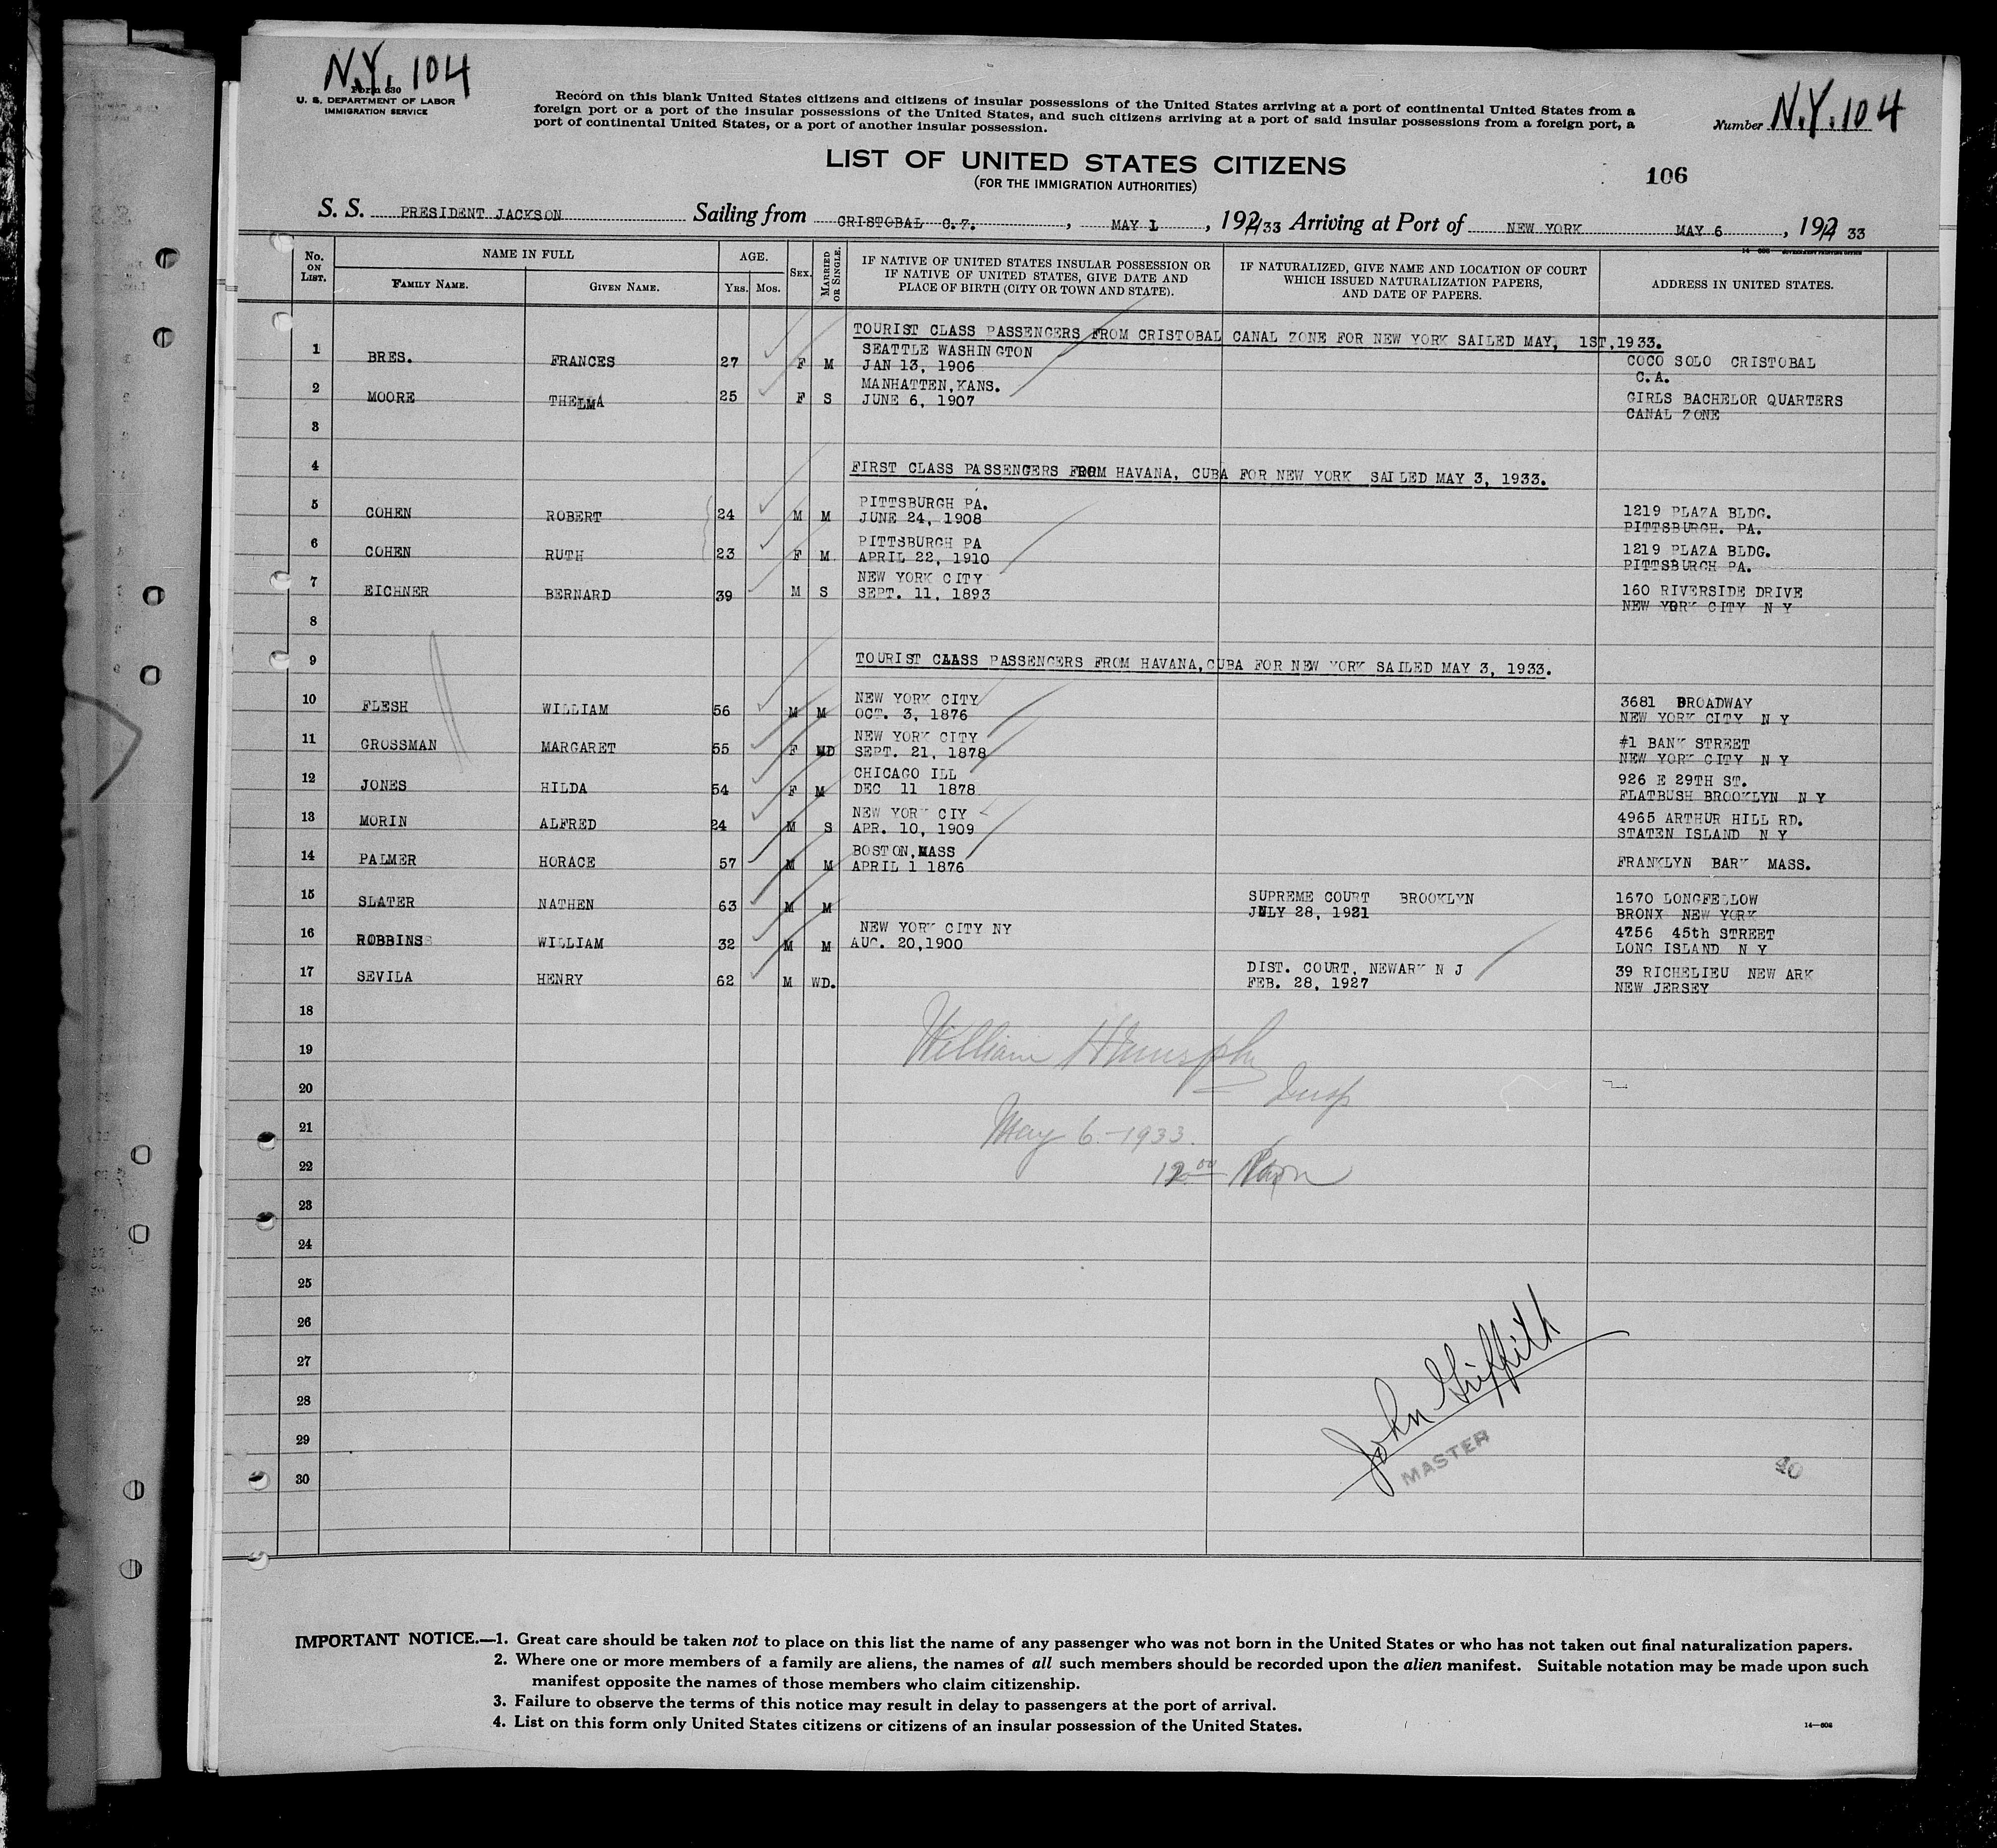 N.Y. 104
Form 630
U. S. DEPARTMENT OF LABOR
IMMIGRATION SERVICE
Record on this blank United States citizens and citizens of insular possessions of the United States arriving at a port of continental United States from a
foreign port or a port of the insular possessions of the United States, and such citizens arriving at a port of said insular possessions from a foreign port, a
port of continental United States, or a port of another insular possession.
Number N.Y. 104
LIST OF UNITED STATES CITIZENS
(FOR THE IMMIGRATION AUTHORITIES)
106
S. S. PRESIDENT JACKSON Sailing from CRISTOBAL C.Z. , MAY 1 , 192 33 Arriving at Port of NEW YORK MAY 6 , 192 33
No. ON LIST. NAME IN FULL FAMILY NAME. GIVEN NAME. AGE. YRS. MOS. SEX. MARRIED OR SINGLE. IF NATIVE OF UNITED STATES INSULAR POSSESSION OR IF NATIVE OF UNITED STATES, GIVE DATE AND PLACE OF BIRTH (CITY OR TOWN AND STATE). IF NATURALIZED, GIVE NAME AND LOCATION OF COURT WHICH ISSUED NATURALIZATION PAPERS, AND DATE OF PAPERS. ADDRESS IN UNITED STATES.
TOURIST CLASS PASSENGERS FROM CRISTOBAL CANAL ZONE FOR NEW YORK SAILED MAY, 1ST,1933.
1 BRES. FRANCES 27 F M SEATTLE WASHINGTON JAN 13, 1906 COCO SOLO CRISTOBAL C.A.
2 MOORE THELMA 25 F S MANHATTEN,KANS. JUNE 6, 1907 GIRLS BACHELOR QUARTERS CANAL ZONE
3
4 FIRST CLASS PASSENGERS FROM HAVANA, CUBA FOR NEW YORK SAILED MAY 3, 1933.
5 COHEN ROBERT 24 M M PITTSBURGH PA. JUNE 24, 1908 1219 PLAZA BLDG. PITTSBURGH. PA.
6 COHEN RUTH 23 F M PITTSBURGH PA APRIL 22, 1910 1219 PLAZA BLDG. PITTSBURGH PA.
7 EICHNER BERNARD 39 M S NEW YORK CITY SEPT. 11, 1893 160 RIVERSIDE DRIVE NEW YORK CITY N Y
8
9 TOURIST CLASS PASSENGERS FROM HAVANA,CUBA FOR NEW YORK SAILED MAY 3, 1933.
10 FLESH WILLIAM 56 M M NEW YORK CITY OCT. 3, 1876 3681 BROADWAY NEW YORK CITY N Y
11 GROSSMAN MARGARET 55 F MD NEW YORK CITY SEPT. 21, 1878 #1 BANK STREET NEW YORK CITY N Y
12 JONES HILDA 54 F M CHICAGO ILL DEC 11 1878 926 E 29TH ST. FLATBUSH BROOKLYN N Y
13 MORIN ALFRED 24 M S NEW YORK CIY APR. 10, 1909 4965 ARTHUR HILL RD. STATEN ISLAND N Y
14 PALMER HORACE 57 M M BOSTON,MASS APRIL 1 1876 FRANKLYN BARK MASS.
15 SLATER NATHEN 63 M M SUPREME COURT BROOKLYN JULY 28, 1921 1670 LONGFELLOW BRONX NEW YORK
16 ROBBINS WILLIAM 32 M M NEW YORK CITY NY AUG. 20,1900 4756 45th STREET LONG ISLAND N Y
17 SEVILA HENRY 62 M WD. DIST. COURT, NEWARK N J FEB. 28, 1927 39 RICHELIEU NEW ARK NEW JERSEY
18
19 William H Murphy
20 Insp
21 May 6 - 1933.
22 12 00 Noon
23
24
25
26
27
28
29
30
John Griffith
MASTER
IMPORTANT NOTICE.—1. Great care should be taken not to place on this list the name of any passenger who was not born in the United States or who has not taken out final naturalization papers.
2. Where one or more members of a family are aliens, the names of all such members should be recorded upon the alien manifest. Suitable notation may be made upon such
manifest opposite the names of those members who claim citizenship.
3. Failure to observe the terms of this notice may result in delay to passengers at the port of arrival.
4. List on this form only United States citizens or citizens of an insular possession of the United States.
14—608